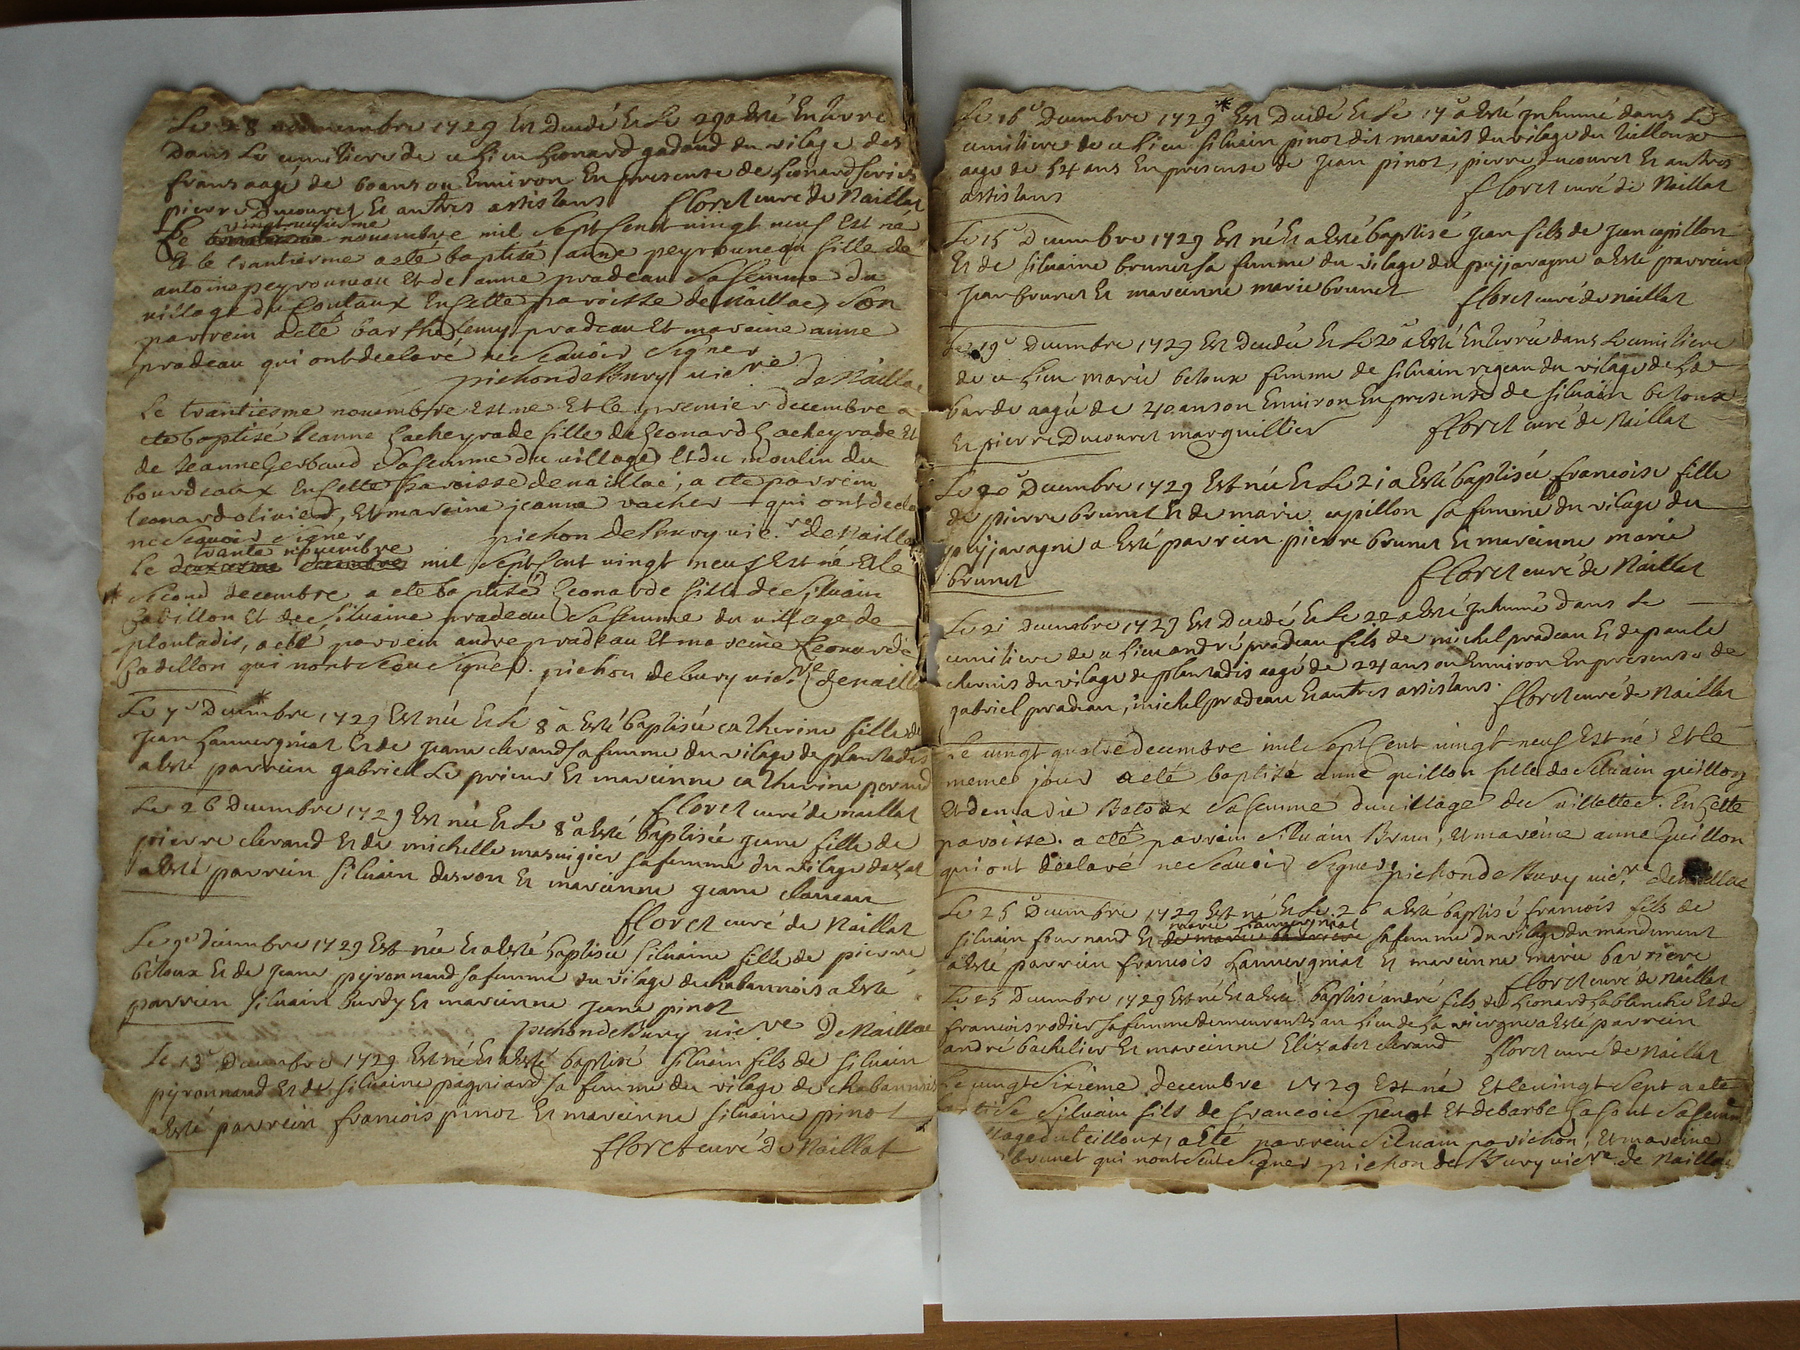 Le 28 novembre 1729 Est Decedé Et Le 29 a Esté Enterré
Dans Le cimetiere de ce Lieu Leonard gadaud du vilage des
frans aagé de 60 ans ou Environ En presence de Leonard
pierre Ducouret Et autres assistans floret curé de Naillat
vingtneufiesme
Le novembre mil sept sent vingt neuf Est né
Et le trantiesme a eté baptisé anne peyrouneau fille de
antoine peyrouneau Et de anne pradeau sa femme du
village du En sette paroisse de Naillac, son
parrein a eté barthelemy pradeau Et mareine anne
pradeau qui ont declaré ne scavoir signer
pichon deBury vicre de Naillac
Le trantiesme novembre Est né Et le premier decembre a
eté baptisé Jeanne Lacheyrade fille de Leonard Lacheyrade Et
de Jeanne Gerbaud sa femme du village Et du moulin du
bourdeaux En sette paroisse de naillac, a eté parrein
leonard olivier, Et mareine jeanne vacher qui ont decla
ne scavoir signer pichon deBury vic.re de Naillac
trante novembre
Le deuxiesme decembre mil sept sent vingt neuf Est né Et le
second decembre a eté baptisé Leonarde fille de Silvain
Et de Silvaine pradeau sa femme du village de
plantadis, a eté parrein andre pradeau Et mareine Leonarde
qui nont sceu signer. pichon debury vicre de naillac
Le 7e Decembre 1729 Est née Et Le 8e a Esté baptisée catherine fille de
Jean Lauvergniat Et de Jeane clerand sa femme du vilage de plantadis
a esté parrein gabriel Le prieur Et mareinne catherine
floret curé de naillat
Le 26 Decembre 1729 Est née Et Le 8e a Esté baptisée Jeane fille de
pierre clerand Et de michelle sa femme du vilage
a Esté parrein silvain Et mareinne Jeane
floret curé de Naillat
Le 9e decembre 1729 Est née Et a Esté baptisée silvaine fille de pierre
betoux Et de Jeane peyronnaud sa femme du vilage de chabannois a Esté
parrein silvain Et mareinne Jeane pinot
pichon deBury vicre DeNaillac
Le 13e Decembre 1729 Est né Et a Esté baptisé silvain fils de silvain
pyronnaud Et de silvaine pagniard sa femme du vilage de chabannois
a Esté parrein francois pinot Et mareinne silvaine pinot
floret curé De Naillat
Le 16e Decembre 1729 Est Decédé Et Le 17e a Esté Inhumé dans Le
cimiliere de ce Lieu silvain pinot dit marais du vilage du teilloux
aagé de 54 ans En presence de Jean pinot, pierre Ducouret Et autres
assistans floret curé de Naillat
Le 15e Decembre 1729 Est né Et a Esté baptisé Jean fils de Jean capillon
Et de silvaine brunet sa femme du vilage du puyjaragne a Esté parrein
Jean brunet Et mareinne marie brunet floret curé de naillat
Le 19e Decembre 1729 Est Decedée Et Le 20e a Esté Enterrée dans Le cimiliere
de ce Lieu marie betoux femme de silvain rigeau du vilage de La
barde aagée de 40 ans ou Environ En presence de silvain betoux
Et pierre Ducouret marguillier floret curé de Naillat
Le 20e Decembre 1729 Est née Et Le 21 a Esté baptisée francoise fille
de pierre brunet Et de marie capillon sa femme du vilage du
puyjaragne a Esté parrein pierre brunet Et mareinne marie
brunet floret curé de Naillat
Le 21 Decembre 1729 Est Decedé Et Le 22 a Esté Inhumé dans Le
cimiliere de ce Lieu andré pradeau fils de michel pradeau Et de paule
du vilage de plantadis aagé de 24 ans ou Environ En presence de
gabriel pradeau, michel pradeau Et autres assistans. floret curé de Naillat
Le vingt quatre decembre mil sept sent vingt neuf Est né Et le
meme jour a eté baptisé anne guillon fille de silvain guillon
Et de marie Batoux sa femme du village de villette. En sette
paroisse. a eté parrein silvain Brun, Et mareine anne Guillon
qui ont declaré ne scavoir signer pichon deBury vic.re de naillac
Le 25e Decembre 1729 Est né Et Le 26 a Esté baptisé francois fils de
marie Lauvergniat
silvain fournaud Et de marie barriere sa femme du vilage du mandement
a Esté parrein francois Lauvergniat Et mareinne marie barriere
floret curé de Naillat
Le 25 Decembre 1729 Est né Et a Esté baptisé andré fils de Leonard Lablanche Et de
francoise rodier sa femme demeurants au Lieu de La viergne a Esté parrein
andré bachelier Et mareinne Elizabet clerand floret curé de Naillat
Le vingt sixieme decembre 1729 Est né Et le vingt sept a eté
silvain fils de francois penot Et de barbe sa femme
du teilloux, a eté parrein silvain parichon, Et mareine
brunet qui nont sceu signer pichon de Bury vicre de Naillac